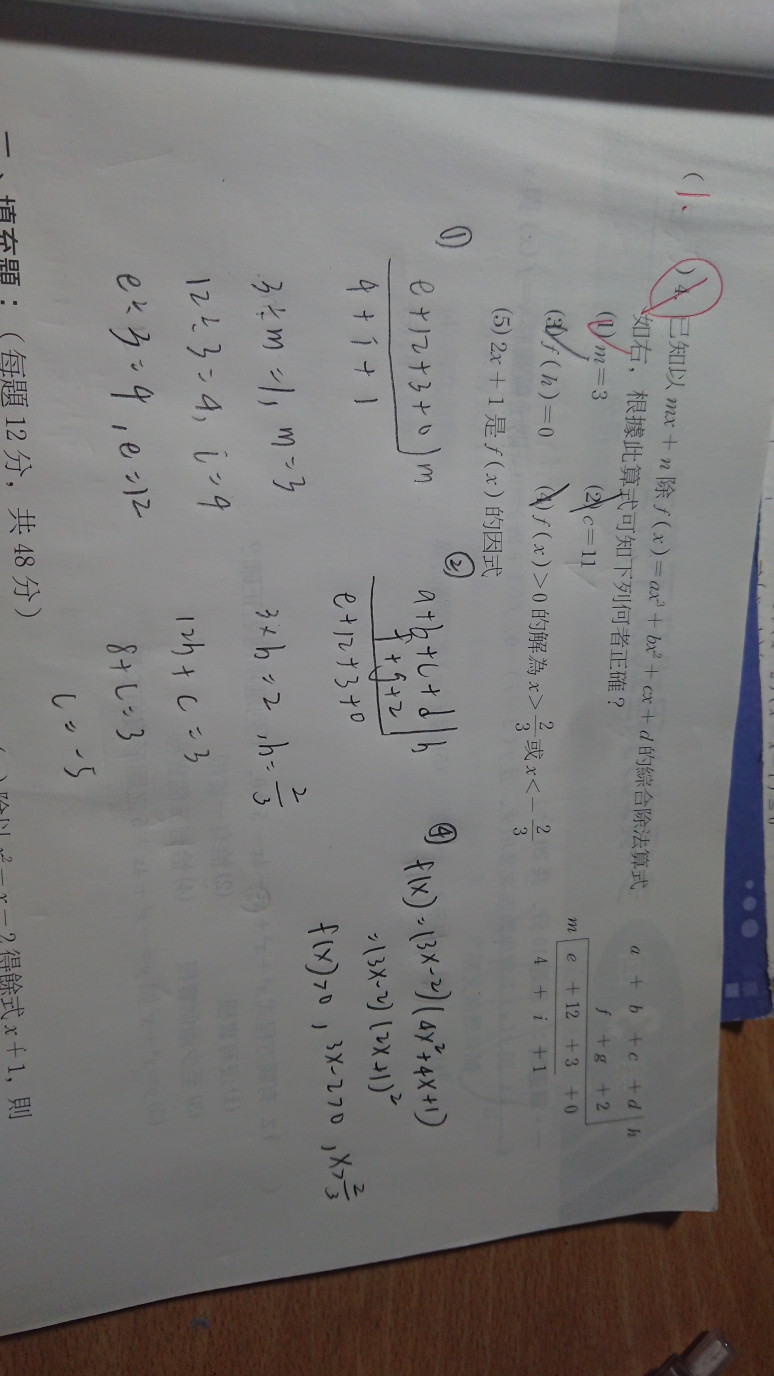 ( 1、 ) 4. 已知以 mx + n 除 f(x) = ax³ + bx² + cx + d 的綜合除法算式
如右，根據此算式可知下列何者正確？
(1) m = 3 (2) c = 11
(3) f(h) = 0 (4) f(x) > 0 的解為 x > 2/3 或 x < -2/3
(5) 2x + 1 是 f(x) 的因式
a + b + c + d | h
f + g + 2
m | e + 12 + 3 + 0
4 + i + 1
①
e+12+3+0 | m
4 + i + 1
3÷m=1, m=3
12÷3=4, i=4
e÷3=4, e=12
②
a+b+c+d | h
f+g+2
e+12+3+0
3×h=2, h=2/3
12h+c=3
8+c=3
c=-5
④
f(x)=(3x-2)(4x²+4x+1)
=(3x-2)(2x+1)²
f(x)>0, 3x-2>0, x>2/3
一、填充題：（每題 12 分，共 48 分）
除以 x² - x - 2 得餘式 x + 1, 則